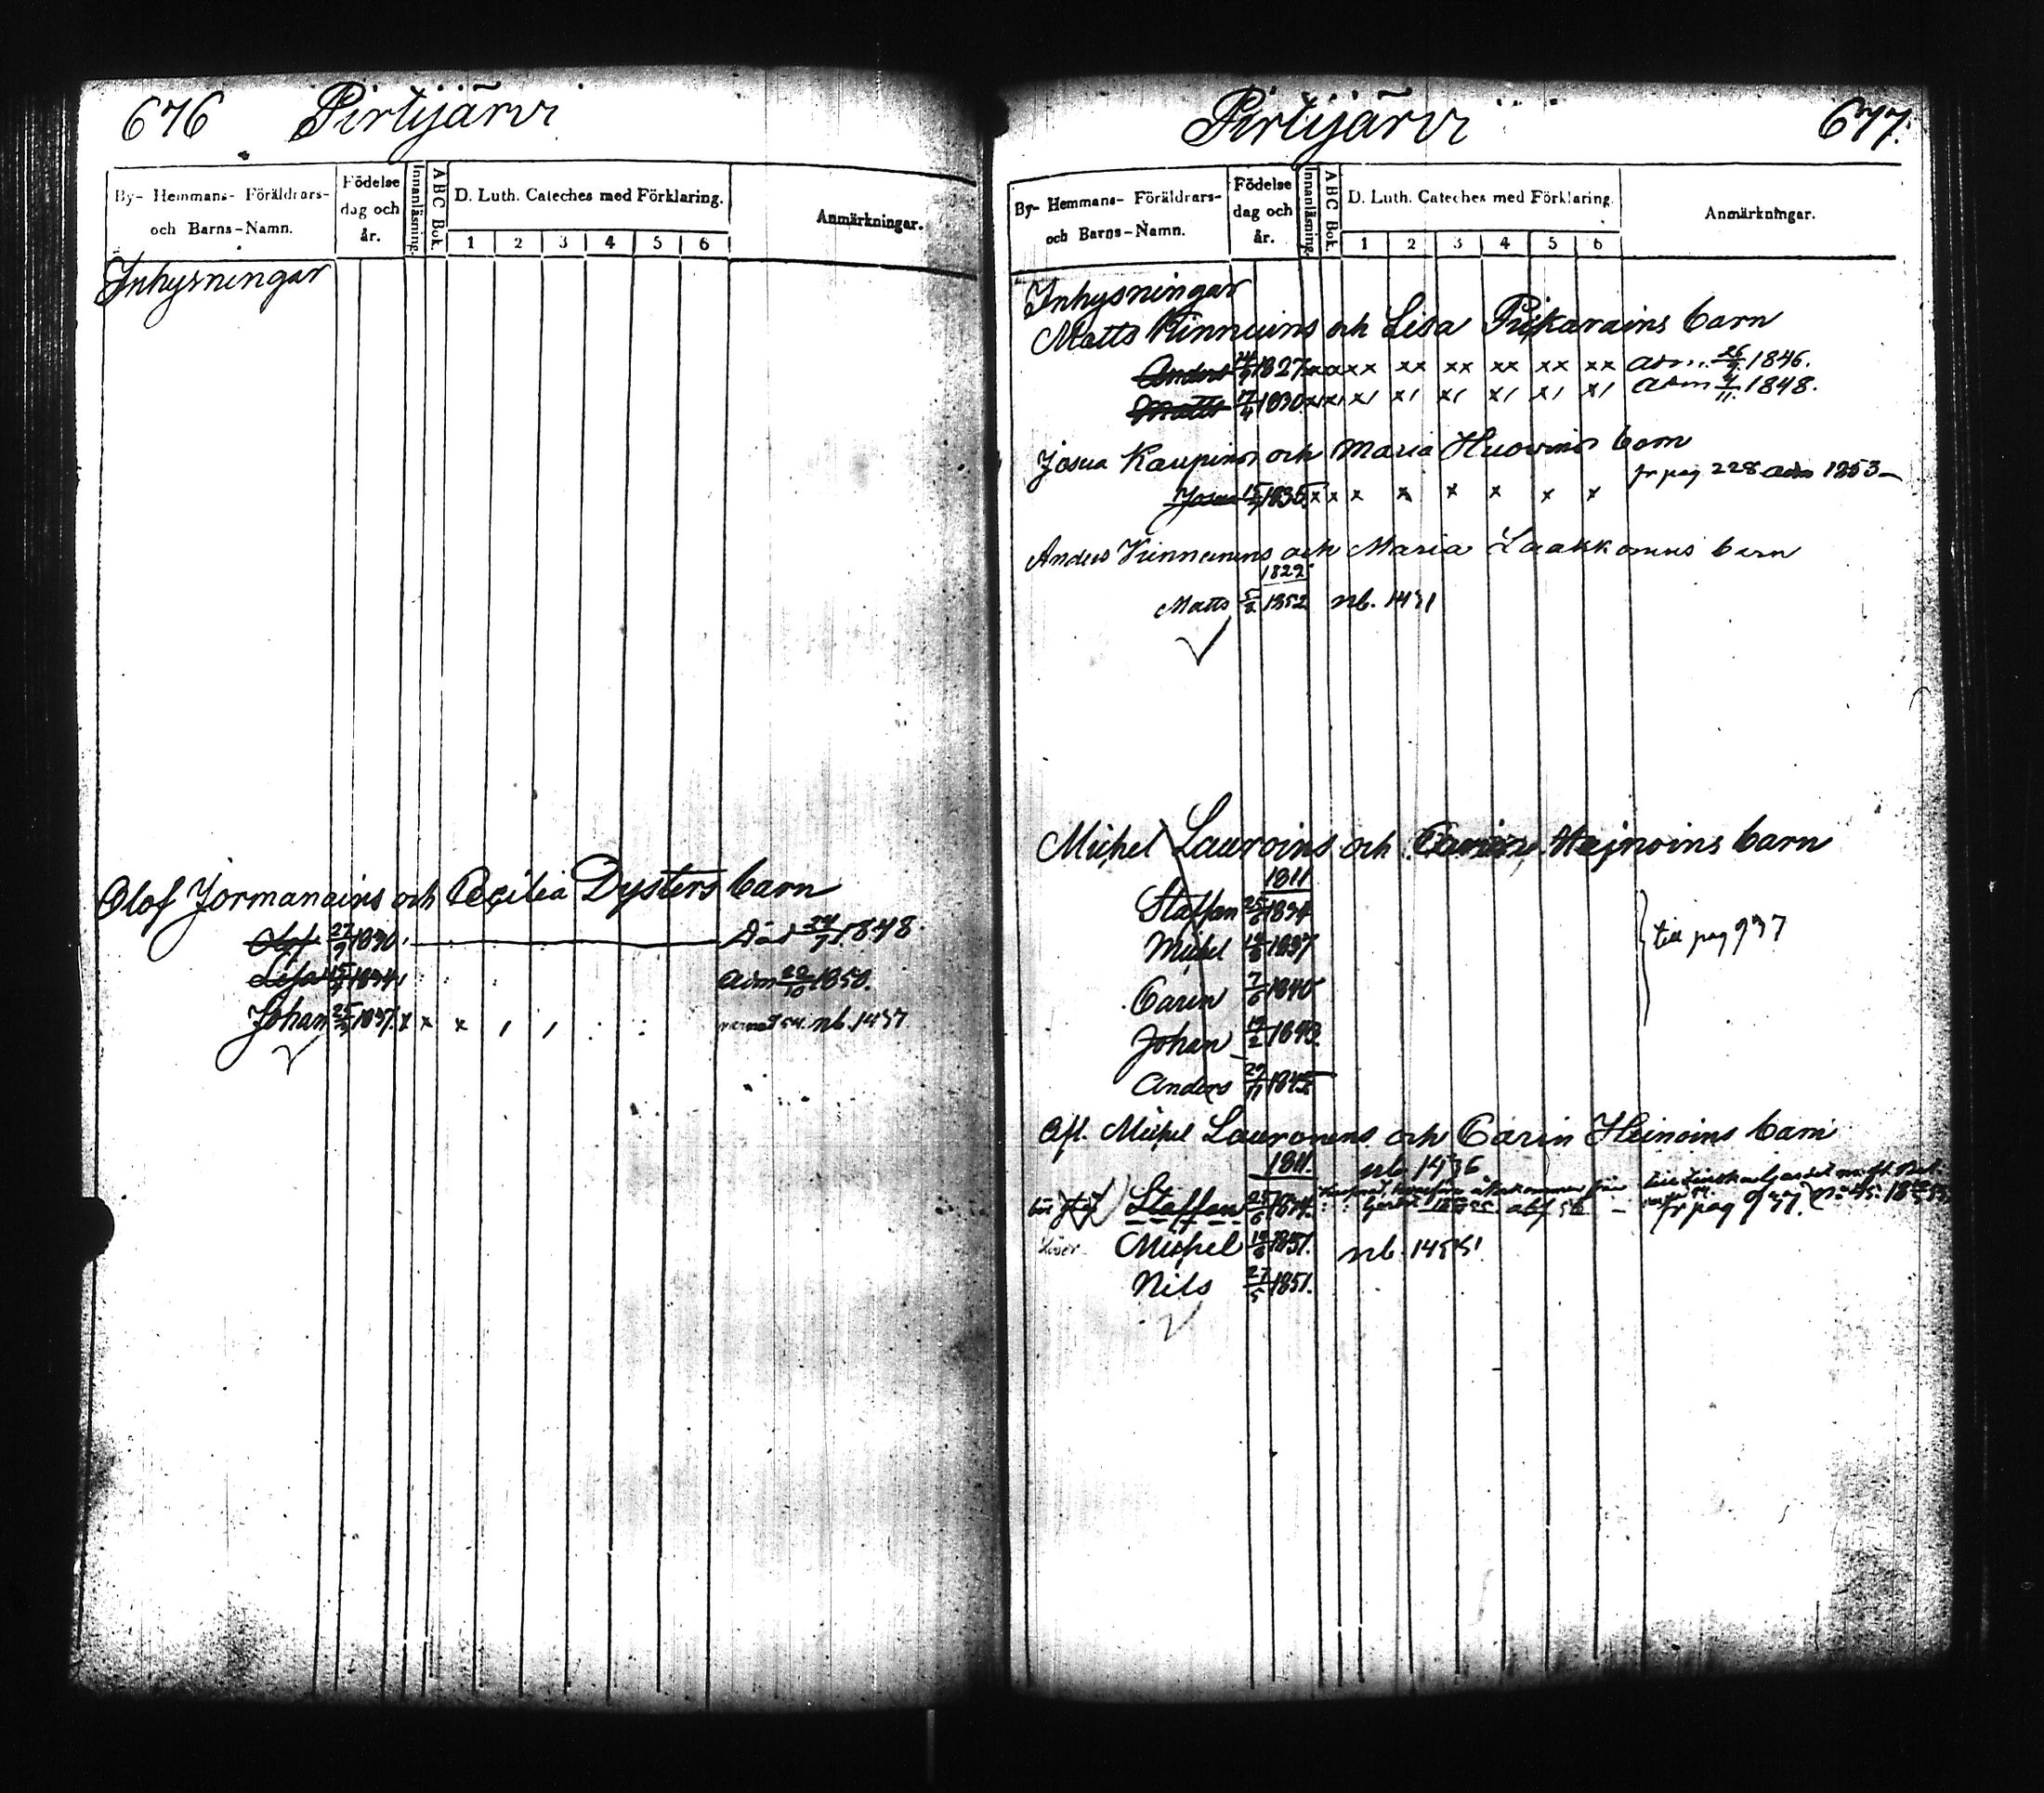 676 Pirtijärvi
By- Hemmans- Föräldrars- och Barns-Namn.
Födelse dag och år.
Innanläsning.
ABC Bok.
D. Luth. Cateches med Förklaring.
1 2 3 4 5 6
Anmärkningar.
Inhysningar
Olof Jormanains och Cecilia Dysters barn
Olof 27/9 1830. Död 1848.
Lisa 1834. adm 22/10 1850.
Johan 1837. x x x nb. 1437
Pirtijärvi 677.
By- Hemmans- Föräldrars- och Barns-Namn.
Födelse dag och år.
Innanläsning.
ABC Bok.
D. Luth. Cateches med Förklaring.
1 2 3 4 5 6
Anmärkningar.
Inhysningar
Matts Kinnuins och Lisa Piskarains barn
Anders 1827 xx xx xx xx xx xx adm. 1846.
Matts 17/4 1830 adm 4/11 1848.
Josua Kaupins och Maria Huovins barn
fr pag 228 adm 1853
Josua 1835. x x x x x x x x
Anders Kinnunens och Maria Laakkonens barn
1822
Matts 1852 nb. 1431
Michel Lauroins och Carin Hejnoins barn
1811
Staffan 25/6 1834
Michel 1837
Carin 7/6 1840
Johan 19/2 1843.
Anders 29/11 1845
till pag 937
Afl. Michel Lauronens och Carin Heinoins barn
1811. nb 1436
Staffan 25/6 1834. fr pag 937.
Michel 1837. nb. 1455!
Nils 27/5 1851.